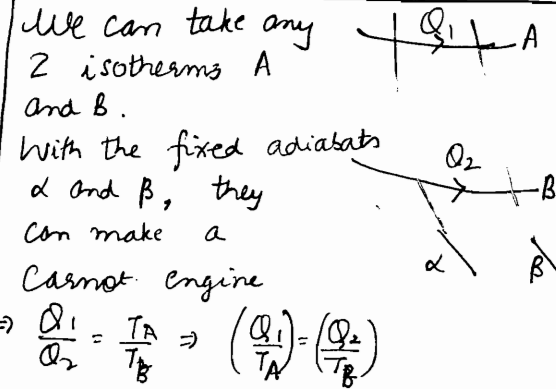 We can take any
2 isotherms A
and B.
With the fixed adiabats
α and β, they
can make a
Carnot engine
⇒ Q1/Q2 = TA/TB ⇒ (Q1/TA) = (Q2/TB)
Q1
A
Q2
B
α
β